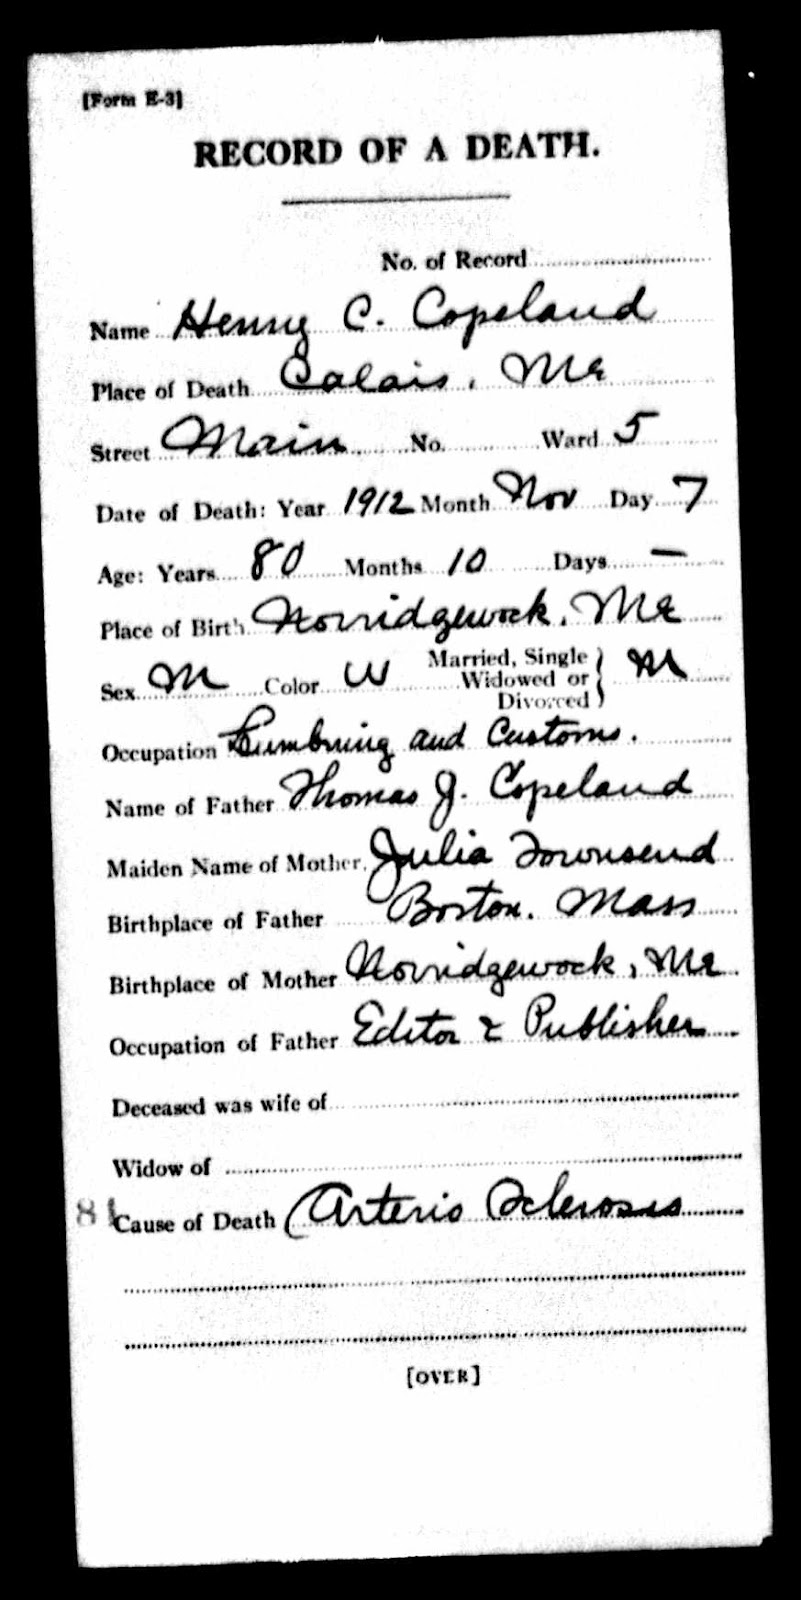 [Form E-3]
RECORD OF A DEATH.
No. of Record
Name Henry C. Copeland
Place of Death Calais, Me
Street Main No. Ward 5
Date of Death: Year 1912 Month Nov Day 7
Age: Years 80 Months 10 Days —
Place of Birth Norridgewock, Me
Sex M Color W Married, Single Widowed or Divorced } M
Occupation Lumbring and Customs.
Name of Father Thomas J. Copeland
Maiden Name of Mother Julia Townsend
Birthplace of Father Boston. Mass
Birthplace of Mother Norridgewock, Me
Occupation of Father Editor & Publisher
Deceased was wife of
Widow of
81 Cause of Death Arterio Sclerosis
[OVER]